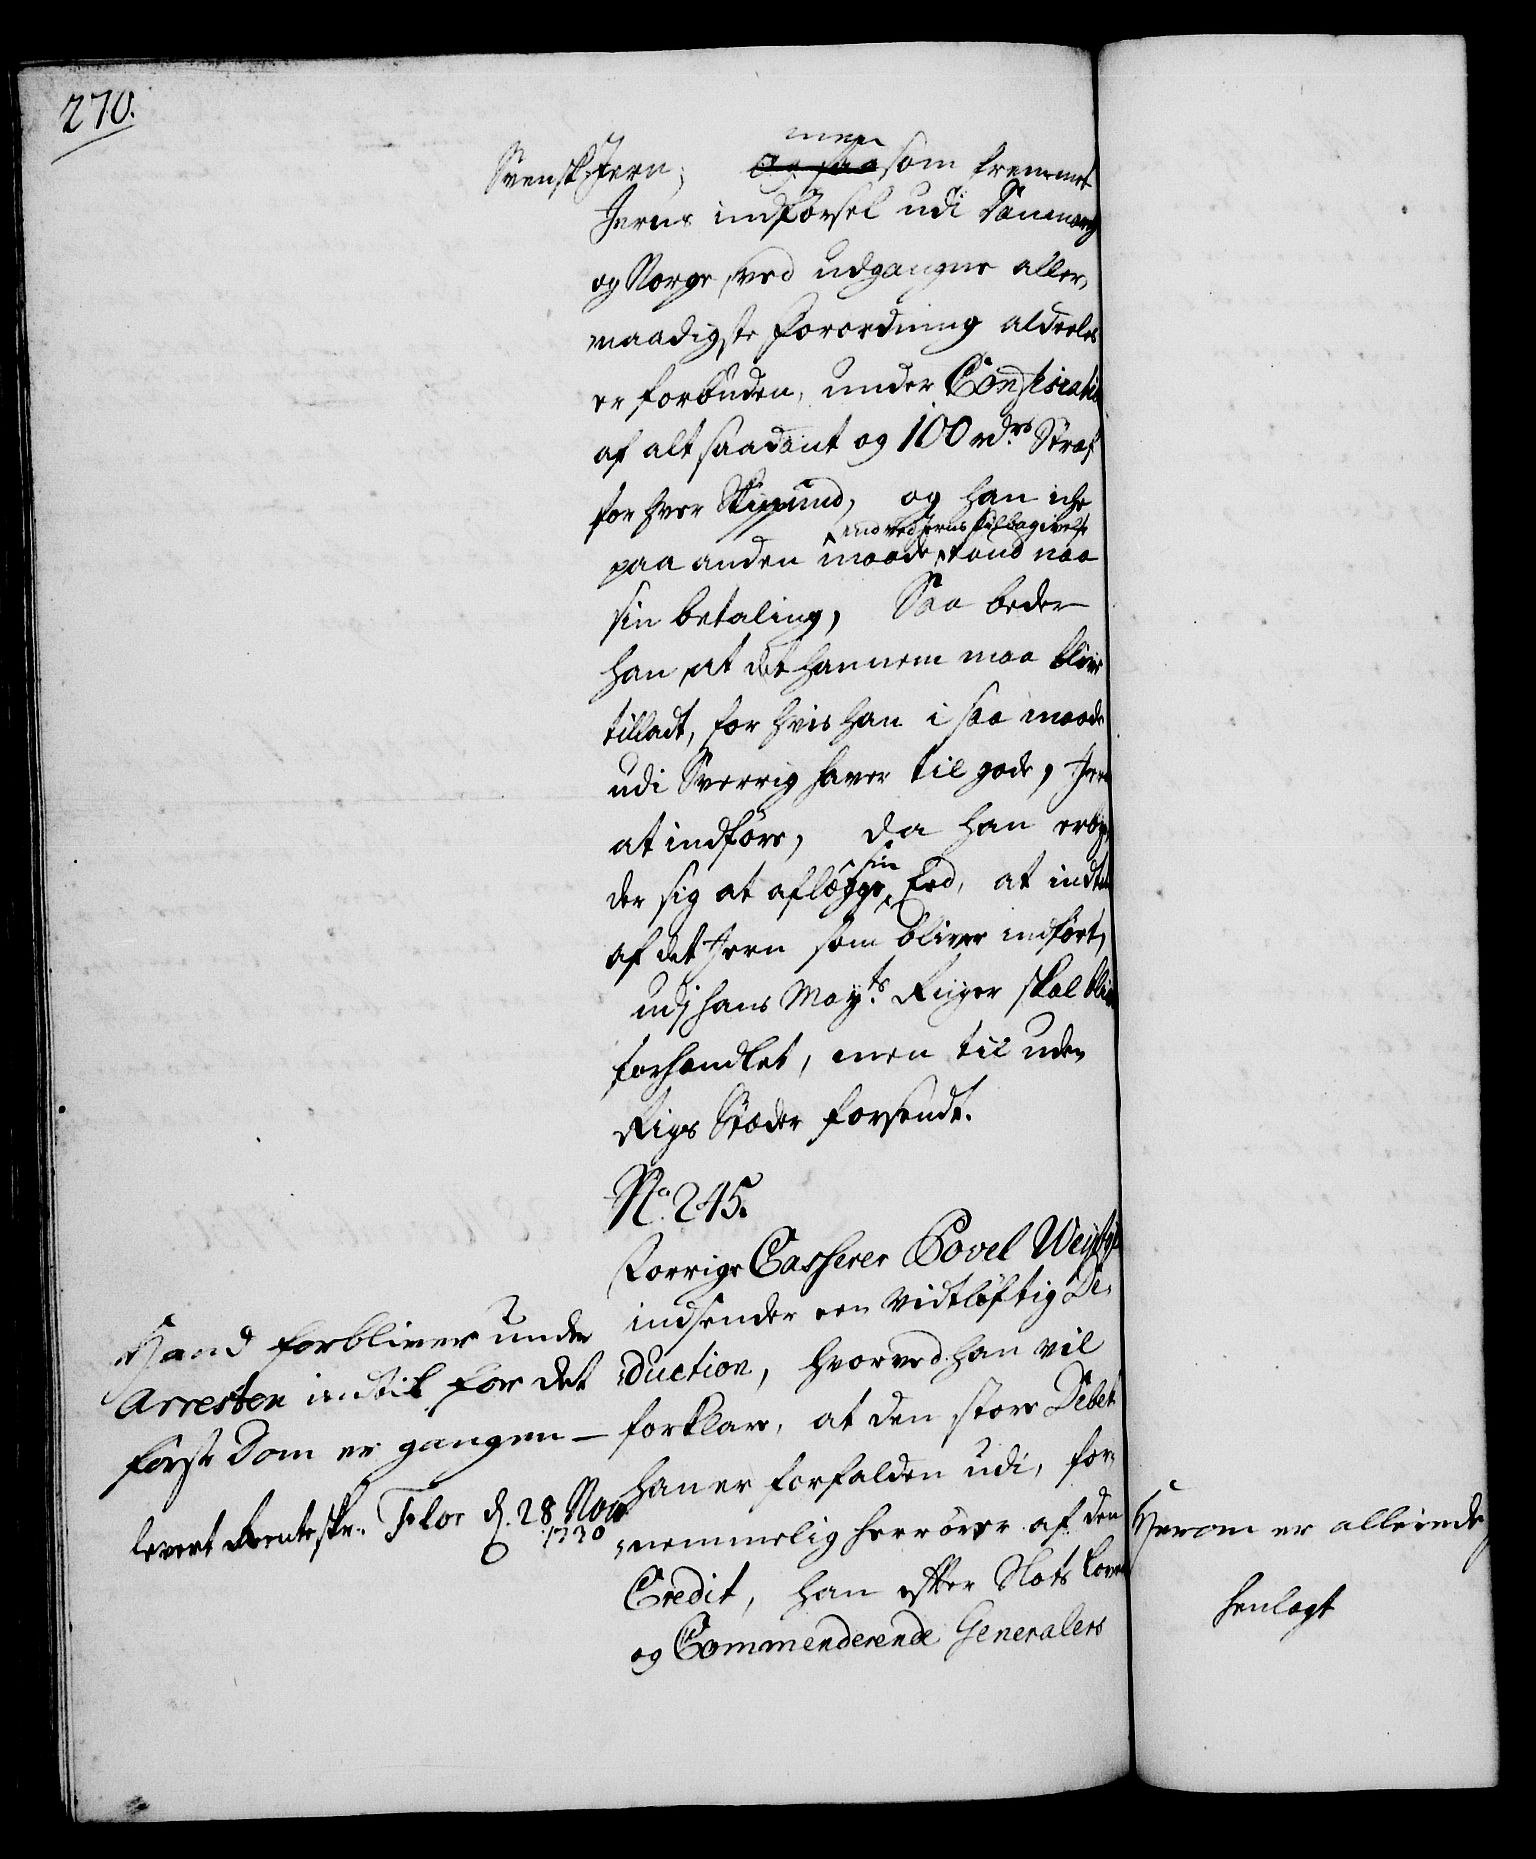 270.
men
Svensk Jern, Og saa som fremmet
Jerns indførsel udi Danmarch
og Norge, ved udgangne aller,
naadigste Forordning aldeeles
er forbuden, under Confiscation
af alt saadant og 100 rdrs Straf
for hver Skipund, og han iche
end ved Jerns tilbagivelse
paa anden maade, kand naa
sin betaling, Saa beder
han, at det hannem maa blive
tilladt, for hvis han i saa maade
udi Sverrig haver til gode, Jern
at indføre, da han erbyr,
sin
der sig at aflægge Eed, at indtet
af det Jern som bliver indført,
udj hans Mayts Riiger skal blive
forhandlet, men til uden
Rigs Stæder forsendt.
No. 245.
Forrige Casserer Povel
indsender een vidtløftig De,
duction, hvorved han vil
forklare, at den store Debet
han er forfalden udi, for,
nemmelig herrører af den
Credit, han efter Slots Loven
og Commenderende Generalers
Hand forbliver under
Arresten indtil for det
første Dom er gangen —
levert Renteskr. Flor d. 28 Nov
1730
Herom er allerede
henlagt